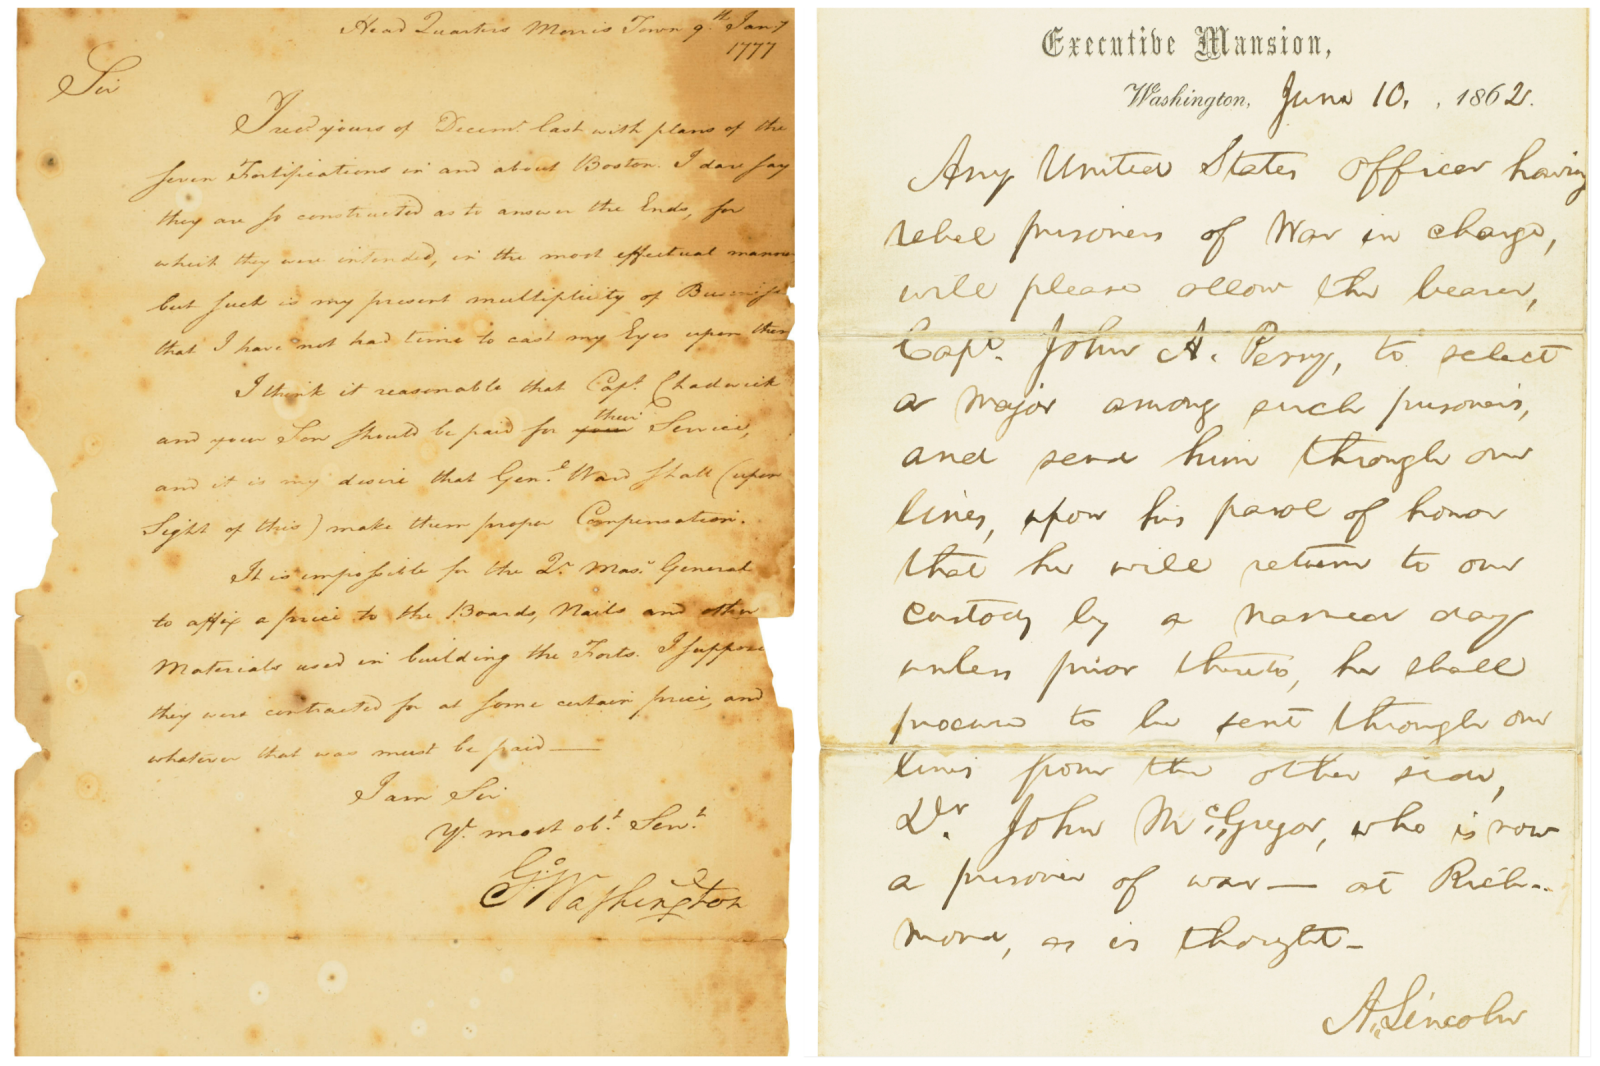 Head Quarters Morris Town 9th Jany
1777
Sir
I recd yours of Decemr last with plans of the
seven Fortifications in and about Boston. I dare say
they are so constructed as to answer the Ends, for
which they were intended, in the most effectual manner
but such is my present multiplicity of Business
that I have not had time to cast my Eyes upon them
I think it reasonable that Capt. Chadwick
and your Son should be paid for your their Service,
and it is my desire that Genl. Ward shall (upon
Sight of this) make them proper Compensation.
It is impossible for the Qr. Masr. General
to affix a price to the Boards, Nails and other
Materials used in building the Forts. I suppose
they were contracted for at some certain price, and
whatever that was must be paid—
I am Sir
Yr. most obt. Servt.
Go: Washington
Executive Mansion,
Washington, June 10, , 1862.
Any United States officer having
rebel prisoners of War in charge,
will please allow the bearer,
Capt. John A. Perry, to select
a Major among such prisoners,
and send him through our
lines, upon his parol of honor
that he will return to our
custody by a named day
unless prior thereto, he shall
procure to be sent through our
lines from the other side,
Dr. John McGregor, who is now
a prisoner of war— at Rich-
mond, as is thought—
A. Lincoln